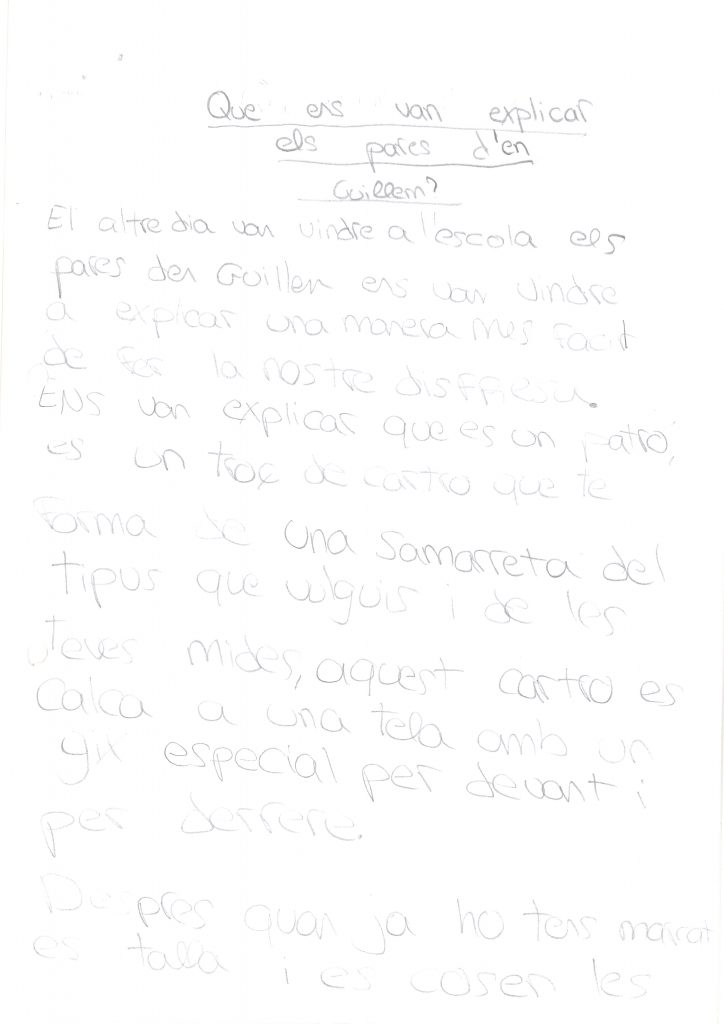 Que ens van explicar
els pares d'en
Guillem?
El altre dia van vindre a l'escola els
pares den Guillem ens van vindre
a explicar una manera mes facil
de fer la nostre disffresa.
ENS van explicar que es un patró,
es un troç de cartro que te
forma de una samarreta del
tipus que vulguis i de les
teves mides, aquest cartro es
Calca a una tela amb un
gix especial per devant i
per derrere.
Despres quan ja ho tens marcat
es talla i es cosen les